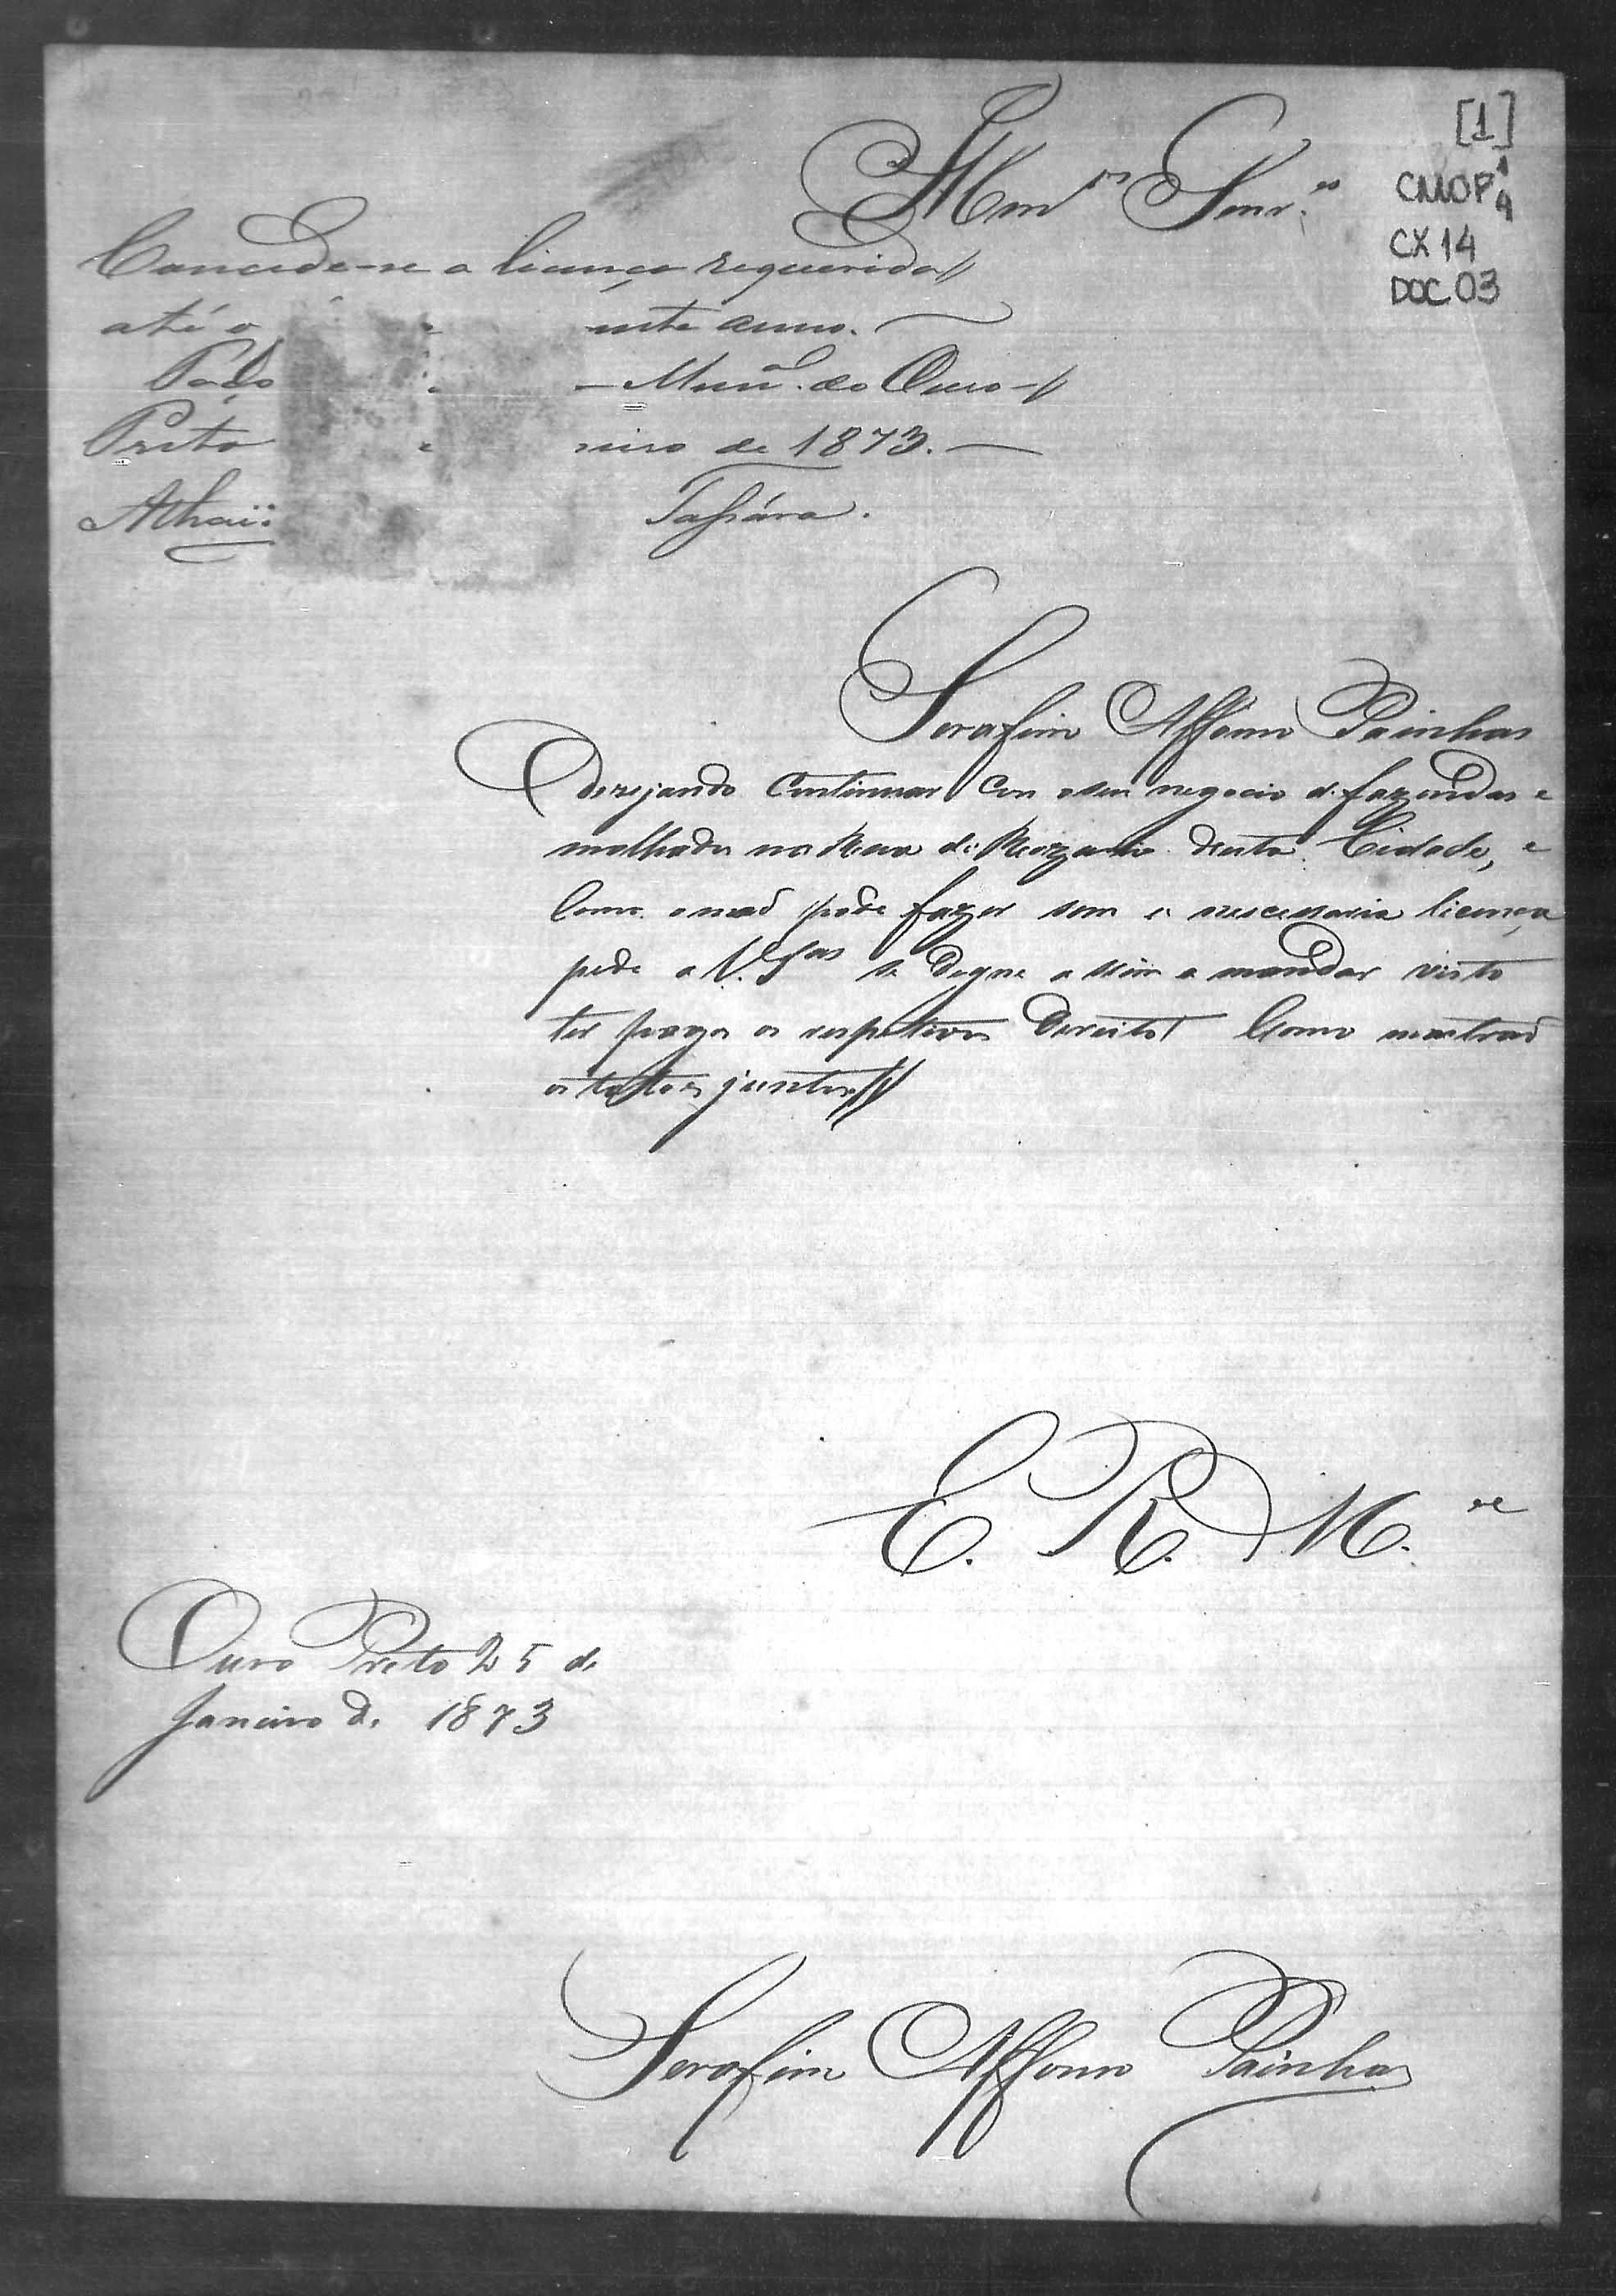 [1]
CMOP 1
4
CX 14
DOC. 03
Illm.os Snr.es
Concede-se a licença requerida
até o nte anno.
Paço Mun.al do Ouro
Preto neiro de 1873.
Athai
Serafim Affonso Painhas
Dezejando Continuar Con o seu negocio de fazendas e
molhados na Rua do Rozario desta Cidade, e
Como o naõ pode fazer sem a nescessaria licença
pede a V. S.as se Digne assim o mandar visto
ter pago os respetivos Direitos Como mostraõ
os juntos
E. R. M.ce
Ouro Preto 25 de
Janeiro de 1873
Serafim Affonso Painhas